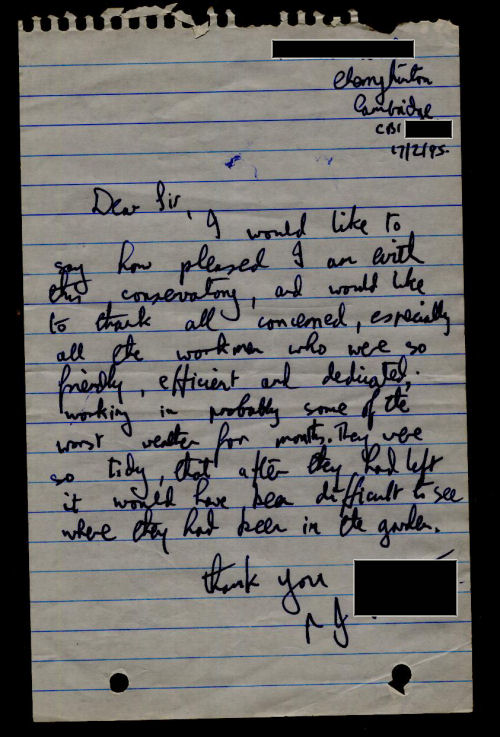 Cherryhinton
Cambridge
CB1
17/2/95.
Dear Sir,
I would like to
say how pleased I am with
this conservatory, and would like
to thank all concerned, especially
all the workmen who were so
friendly, efficient and dedicated,
working in probably some of the
worst weather for months. They were
so tidy, that after they had left
it would have been difficult to see
where they had been in the garden.
thank you